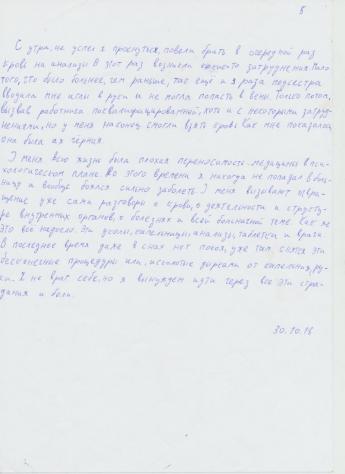 5
С утра, не успел я проснуться, повели брать в очередной раз
кровь на анализы. В этот раз возникли затруднения. Мало
того, что было больнее, чем раньше, так ещё и раза медсестра
вводила мне иглы в руки и не могла попасть в вену. Только потом,
вызвав работника поквалифицированней, хоть и с некоторыми затруд-
нениями, но у меня наконец смогли взять кровь. Как мне показалось,
она была аж чёрная.
У меня всю жизнь была плохая переносимость медицины в пси-
хологическом плане. До этого времени я никогда не попадал в боль-
ницу и вообще боялся сильно заболеть. У меня вызывают отвра-
щение уже сами разговоры о крови, о деятельности и структу-
ре внутренних органов, о болезнях и всей больничной теме. Как же
это всё надоело. Эти уколы, капельницы, анализы, таблетки и врачи.
В последнее время даже в снах нет покоя, уже там снятся эти
бесконечные процедуры или исколотые дырками от капельниц ру-
ки. Я не враг себе, но я вынужден идти через все эти стра-
дания и боли.
30.10.18